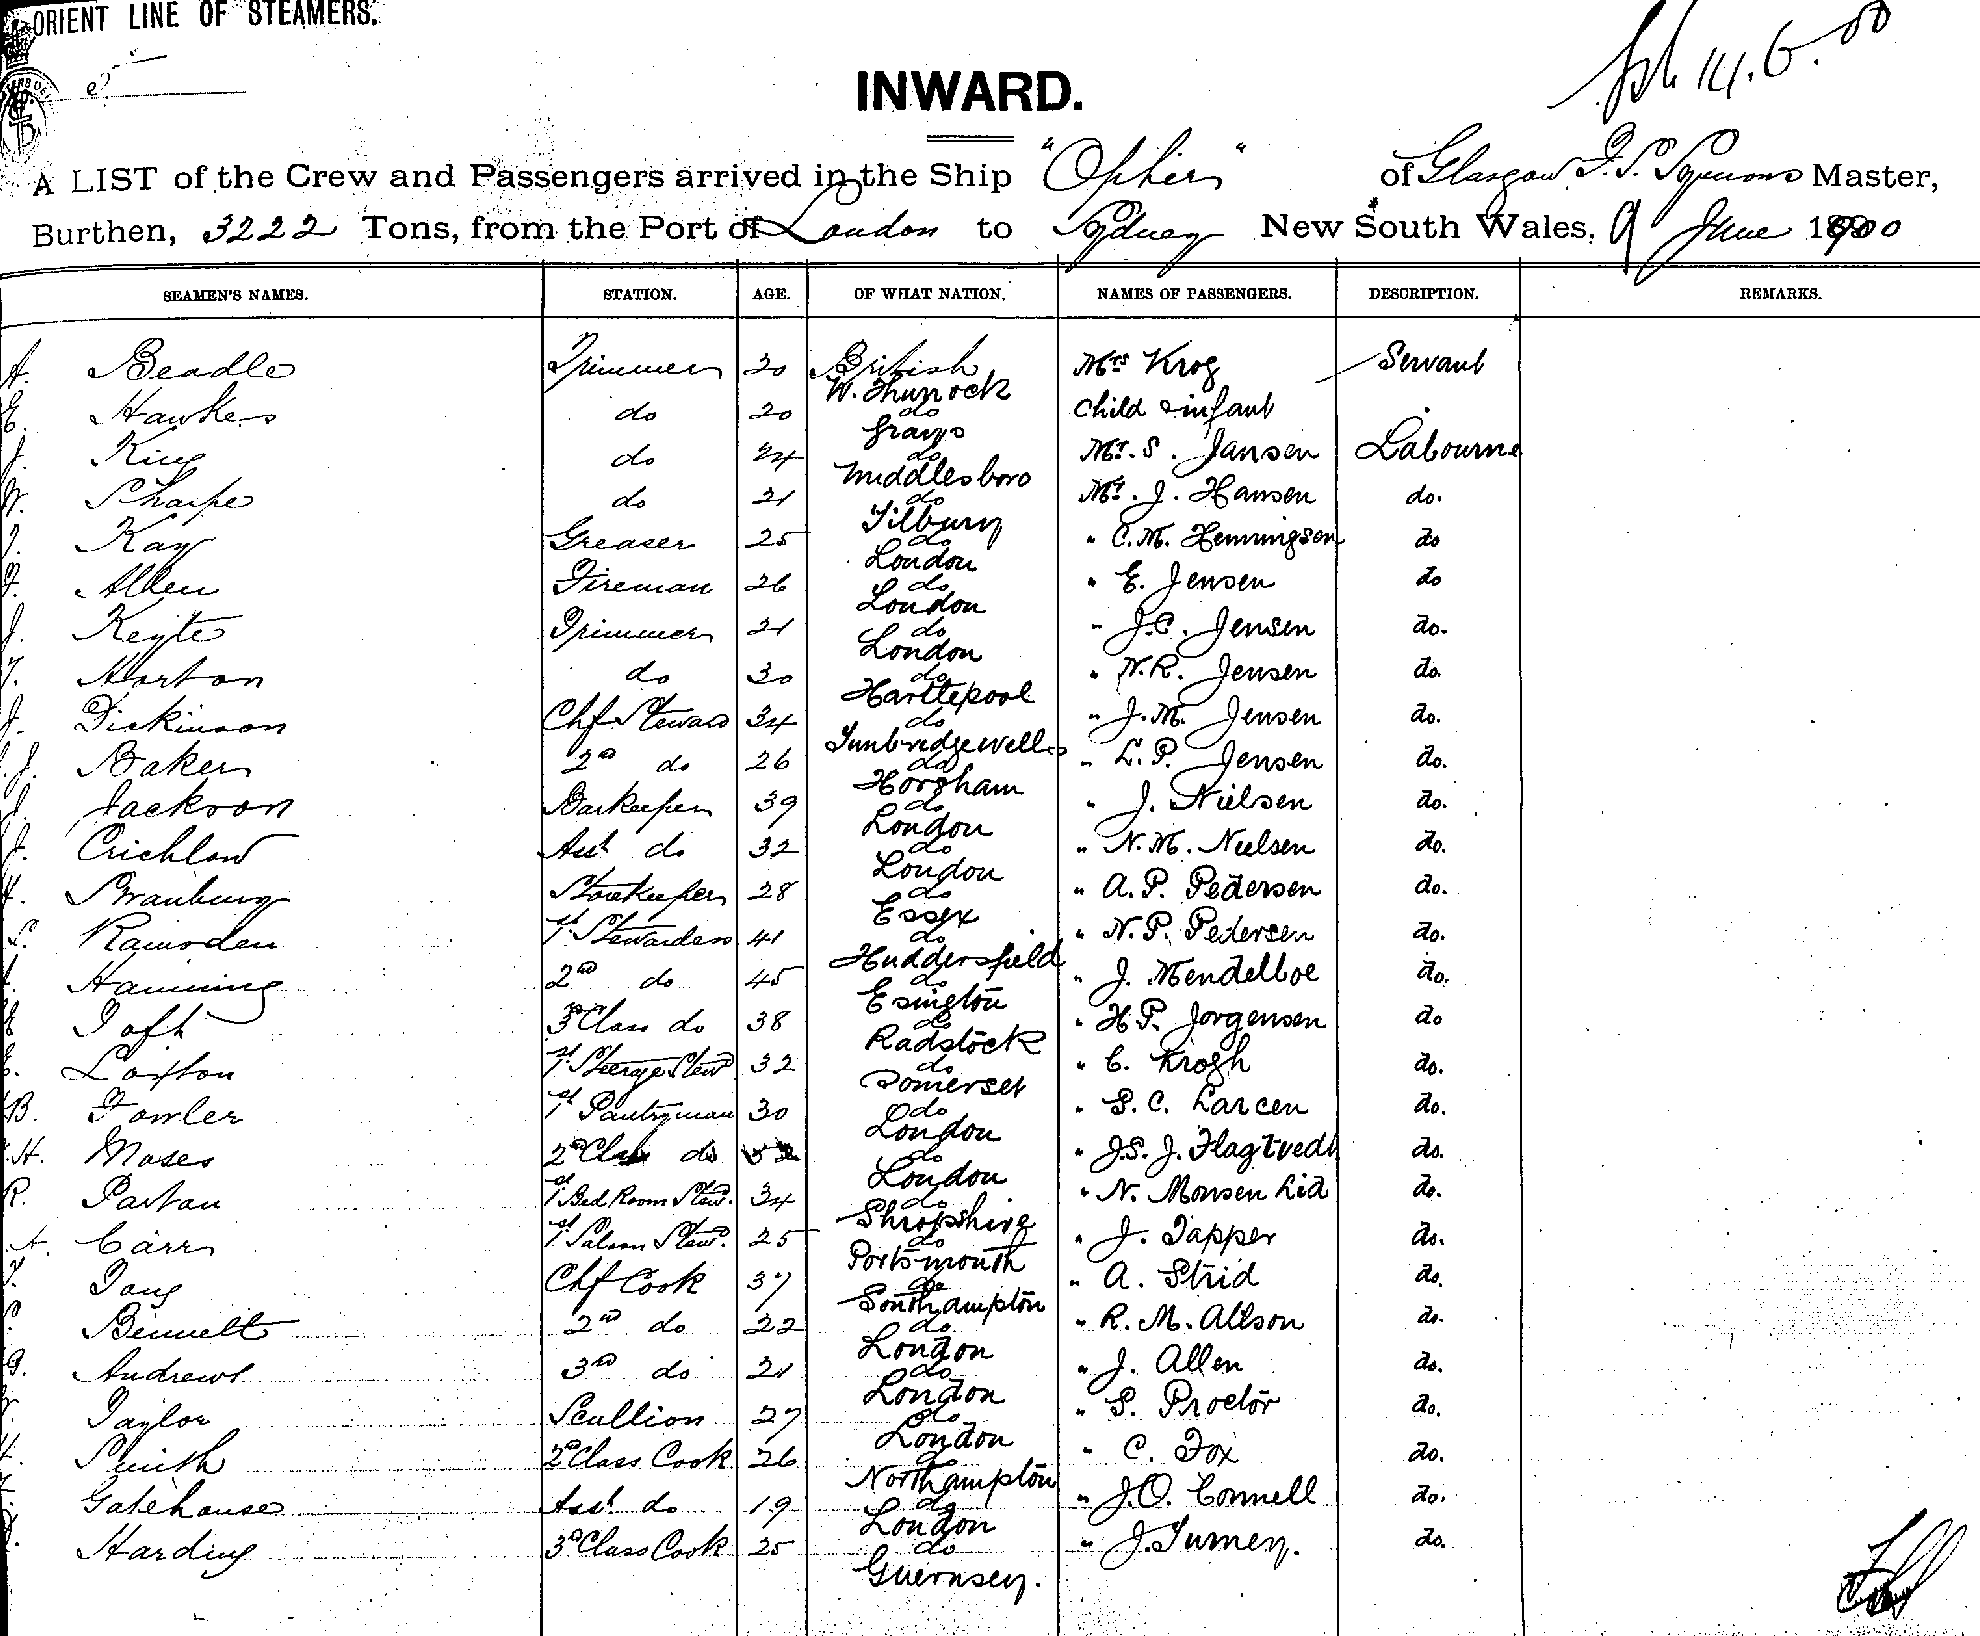 ORIENT LINE OF STEAMERS.
14.6.00
INWARD.
A LIST of the Crew and Passengers arrived in the Ship "Ophir" of Glasgow J. F. Symons Master,
Burthen, 3222 Tons, from the Port of London to Sydney New South Wales, 9 June 1900
SEAMEN'S NAMES. STATION. AGE. OF WHAT NATION. NAMES OF PASSENGERS. DESCRIPTION. REMARKS.
A. Beadle Trimmer 20 British W. Thurrock Mrs Krog Servant
E. Hawkes do 20 do Grays Child & infant
J. King do 24 do Middlesboro Mr. S. Jansen Labourer
W. Sharpe do 21 do Tilbury Mr. J. Hansen do.
J. Kay Greaser 25 do London " C. M. Henningsen do
F. Allen Fireman 26 do London " E. Jensen do
J. Keyte Trimmer 21 do London " J.C. Jensen do.
T. Norton do 30 do Hartlepool " N.R. Jensen do.
J. Dickinson Chf Steward 34 do Tunbridge Wells " J.M. Jensen do.
J. Baker 2nd do 26 do Horsham " L.P. Jensen do.
J. Jackson Barkeeper 39 do London " J. Nielsen do.
J. Crichlow Asst do 32 do London " N.M. Nielsen do.
Swanbury Storekeeper 28 do Essex " A.P. Pedersen do.
S. Ramsden 1st Stewardess 41 do Huddersfield " N.P. Pedersen do.
Hamming 2nd do 45 do Esington " J. Mendelboe do.
Toft 3d Class do 38 do Radstock " H.P. Jorgensen do
Loxton 1st Steerge Stewd 32 do Somerset " C. Krogh do.
B. Fowler 1st Pantryman 30 do London " S.C. Larcen do.
H. Moses 2d Class do do London " J.S.J. Flagtvedt do.
R. Partan 1st Bed Room Stewd. 34 do Shropshire " N. Monsen Lid do.
A. Carr 1st Saloon Stewd. 25 do Portsmouth " J. Tapper do.
T. Tong Chf Cook 37 do Southampton " A. Strid do.
Bennett 2nd do 22 do London " R. M. Allson do.
G. Andrews 3rd do 21 do London " J. Allen do.
Taylor Scullion 27 do London " S. Proctor do.
Smith 2d Class Cook 26 do Northampton " C. Fox do.
Gatehouse Asst do 19 do London " J.O. Connell do.
Harding 3d Class Cook 25 do Guernsey. " J. Turney. do.